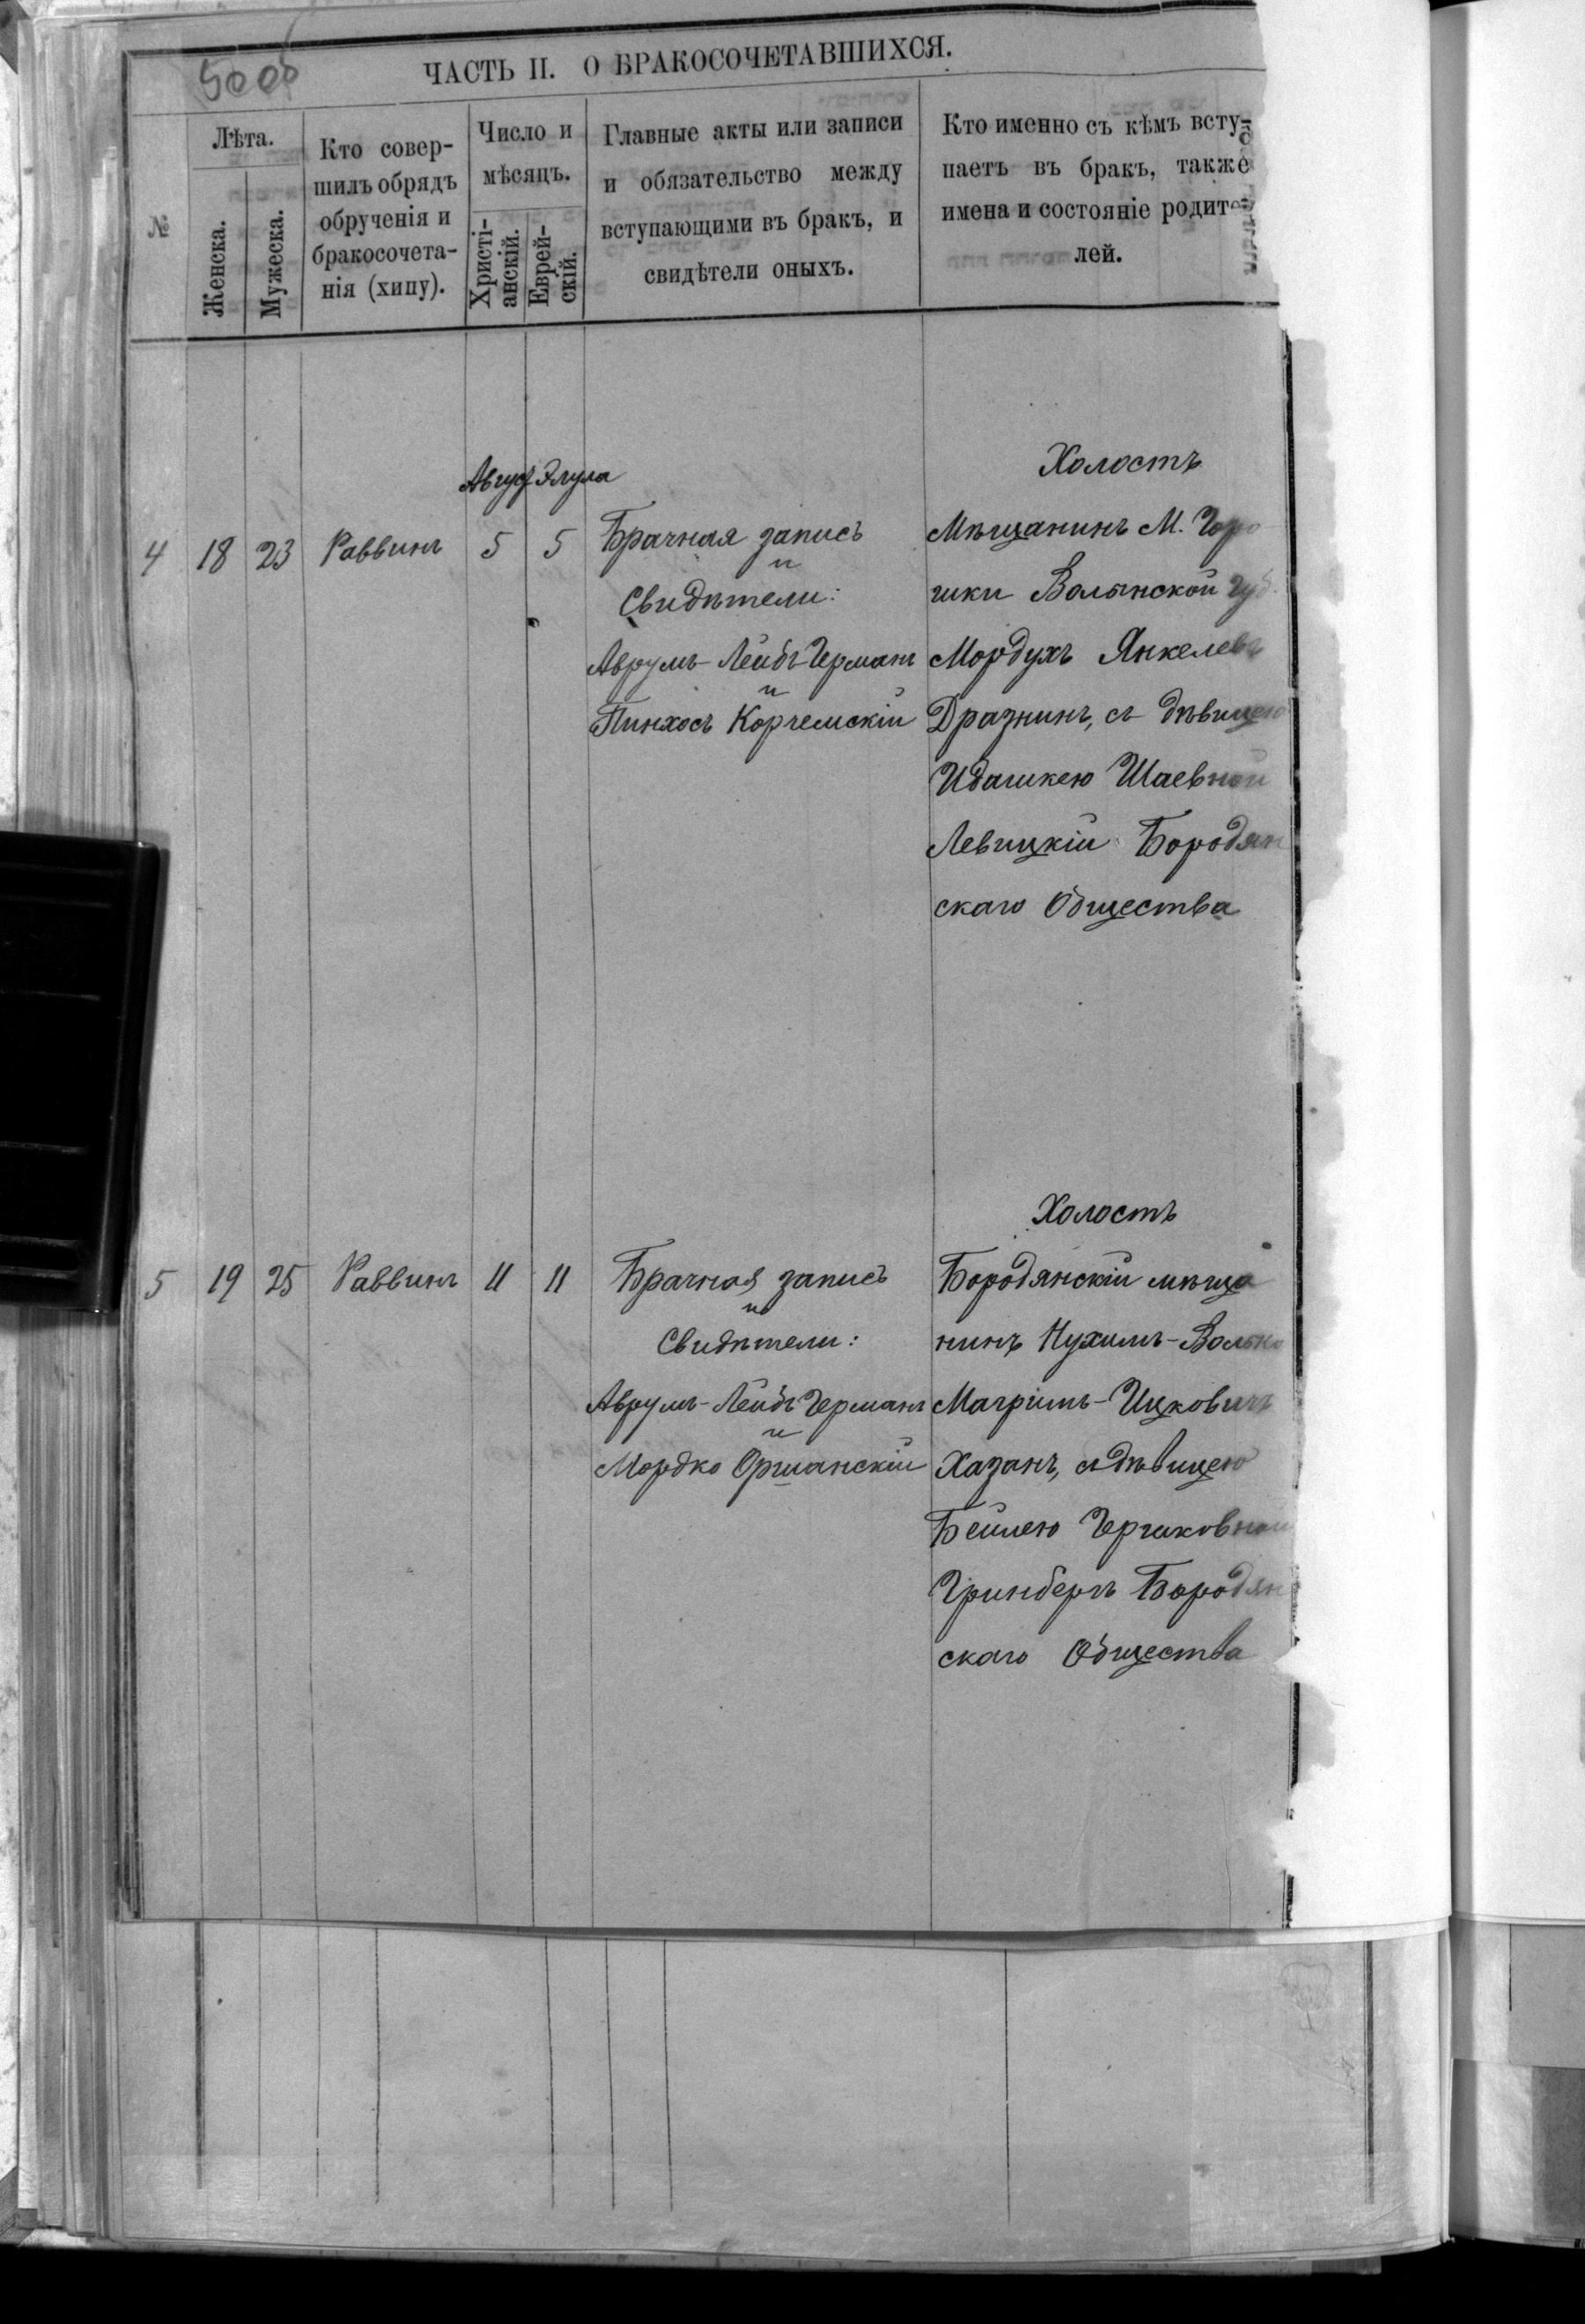 5000
ЧАСТЬ II. О БРАКОСОЧЕТАВШИХСЯ.
№
Лѣта.
Женска.
Мужеска.
Кто совер-
шилъ обрядъ
обрученія и
бракосочета-
нія (хипу).
Число и
мѣсяцъ.
Христі-
анскій.
Еврей-
скій.
Главные акты или записи
и обязательство между
вступающими въ бракъ, и
свидѣтели оныхъ.
Кто именно съ кѣмъ всту-
паетъ въ бракъ, также
имена и состояніе родите-
лей.
Август Элула
4 18 23 Раввинъ 5 5
Брачная запись
и
Свидѣтели:
Аврумъ-Лейбъ Германъ
и
Пинхосъ Корчемскій
Холостъ
Мѣщанинъ М. Горо
шки Волынской губ.
Мордухъ Янкелевъ
Дразнинъ, съ дѣвицею
Идашкею Шаевной
Левицкій Бородян
скаго Общества
5 19 25 Раввинъ 11 11
Брачная запись
и
Свидѣтели:
Аврумъ-Лейбъ Германъ
и
Мордко Оршанскій
Холостъ
Бородянскій мѣща
нинъ Нухимъ-Волько
Маргимъ-Ицковичъ
Хазанъ, съ дѣвицею
Бейлею Гершковной
Гринбергъ Бородян
скаго Общества